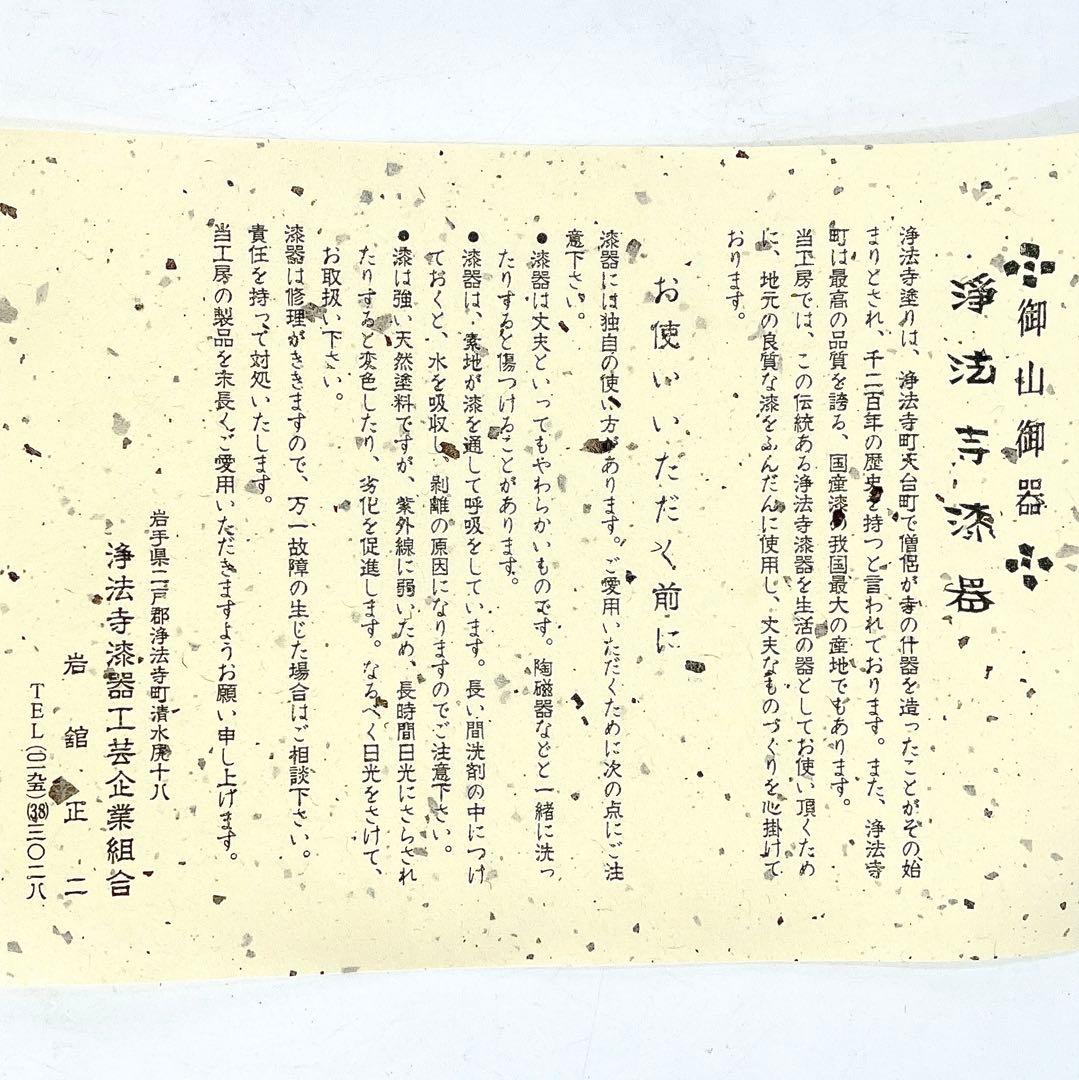 御山御器
浄法寺漆器
浄法寺塗りは、浄法寺町天台町で僧侶が寺の什器を造ったことがその始
まりとされ、千二百年の歴史を持つと言われております。また、浄法寺
町は最高の品質を誇る、国産漆の我国最大の産地でもあります。
当工房では、この伝統ある浄法寺漆器を生活の器としてお使い頂くため
に、地元の良質な漆をふんだんに使用し、丈夫なものづくりを心掛けて
おります。
お使いいただく前に
漆器には独自の使い方があります。ご愛用いただくために次の点にご注
意下さい。
●漆器は丈夫といってもやわらかいものです。陶磁器などと一緒に洗っ
たりすると傷つけることがあります。
●漆器は、素地が漆を通して呼吸をしています。長い間洗剤の中につけ
ておくと、水を吸収し、剥離の原因になりますのでご注意下さい。
●漆は強い天然塗料ですが、紫外線に弱いため、長時間日光にさらされ
たりすると変色したり、劣化を促進します。なるべく日光をさけて、
お取扱い下さい。
漆器は修理がききますので、万一故障の生じた場合はご相談下さい。
責任を持って対処いたします。
当工房の製品を末長くご愛用いただきますようお願い申し上げます。
岩手県二戸郡浄法寺町清水尻十八
浄法寺漆器工芸企業組合
岩舘正二
TEL(〇一九五)(38)三〇二八